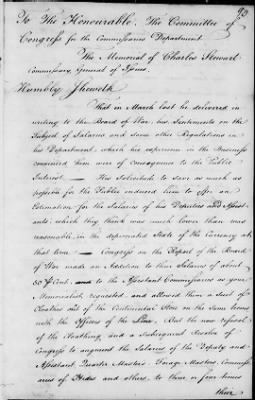 To The Honourable, The Committee of
Congress for the Commissaries Department
The Memorial of Charles Stewart
Commissary General of Issues,
Humbly Sheweth
That in March last he delivered in
writing to the Board of War, his Sentiments on the
Subject of Salaries and some other Regulations in
his Department, which his experience in the Business
convinced him were of Consequence to the Public
Interest — His Solicitude to save as much as
possible for the Public induced him to offer an
Estimation for the Salaries of his Deputies and Assist
ants, which they think was much lower than was
reasonable, in the depreciated State of the Currency at
that time — Congress on the Report of the Board
of War made an Addition to their Salaries of about
50 ⅌ Cent. and to the Assistant Commissaries as your
Memorialist requested and allowed them a Suit of
Cloaths out of the Continental Store on the Same terms
with the Officers of the Line. But the now refusal
of the Cloathing, and a Subsequent Resolve of
Congress to augment the Salaries of the Deputy and
Assistant Quarter Masters, Forage Masters, Commiss
aries of Hides and others, to three or four times
their